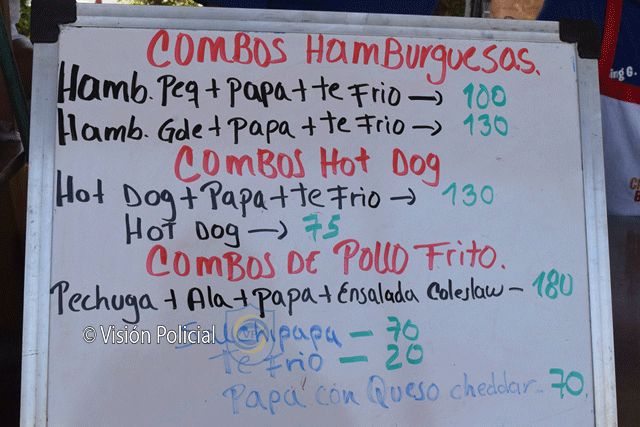 COMBOS HamBurguesas.
Hamb. Peq + papa + te Frio → 100
Hamb. Gde + papa + te Frio → 130
COMBOS Hot Dog
Hot Dog + Papa + te Frio → 130
Hot Dog → 75
COMBOS DE POLLO Frito.
Pechuga + Ala + papa + Ensalada Coleslaw - 180
© Visión Policial
Salchipapa - 70
te Frio - 20
Papa con Queso cheddar - 70